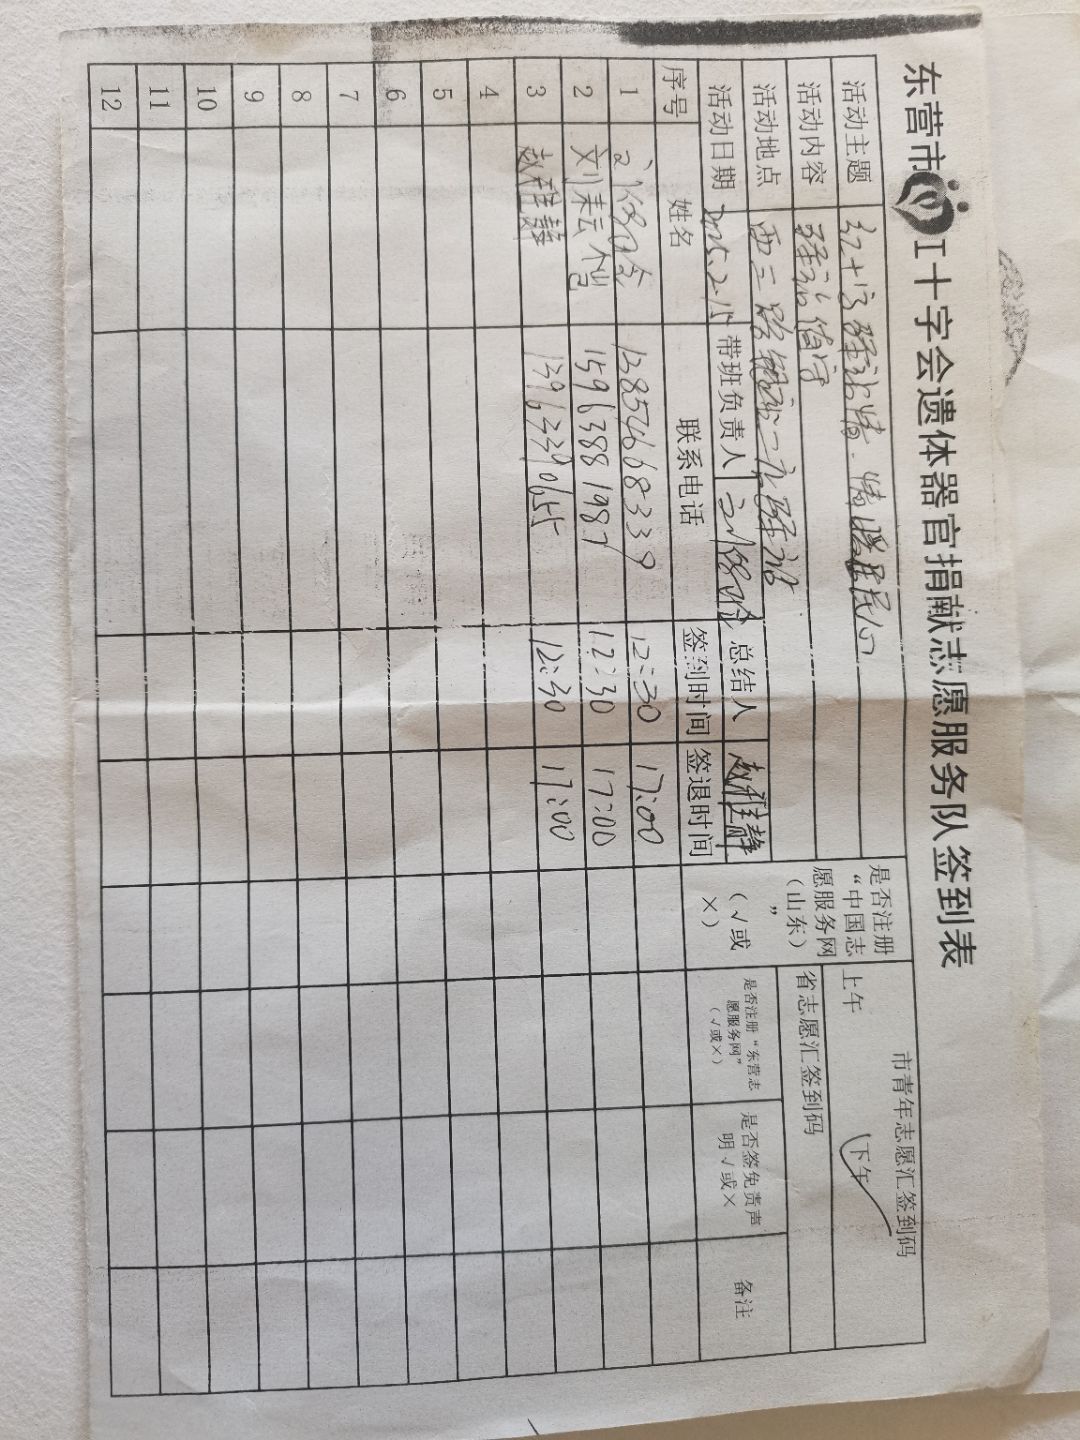 东营市 工十字会遗体器官捐献志愿服务队签到表
活动主题 红十字驿站情.情暖居民心
市青年志愿汇签到码
上午 下午
活动内容 驿站值守
活动地点 西三路
省志愿汇签到码
活动日期 2025.2.15 带班负责人 总结人 赵雅静
是否注册“中国志愿服务网（山东）” （√或×）
是否注册“东营志愿服务网”（√或×）
是否签免责声明√或×
备注
序号 姓名 联系电话 签到时间 签退时间
1 13854668339 12:30 17:00
2 15963881987 12:30 17:00
3 赵雅静 13963390655 12:30 17:00
4
5
6
7
8
9
10
11
12